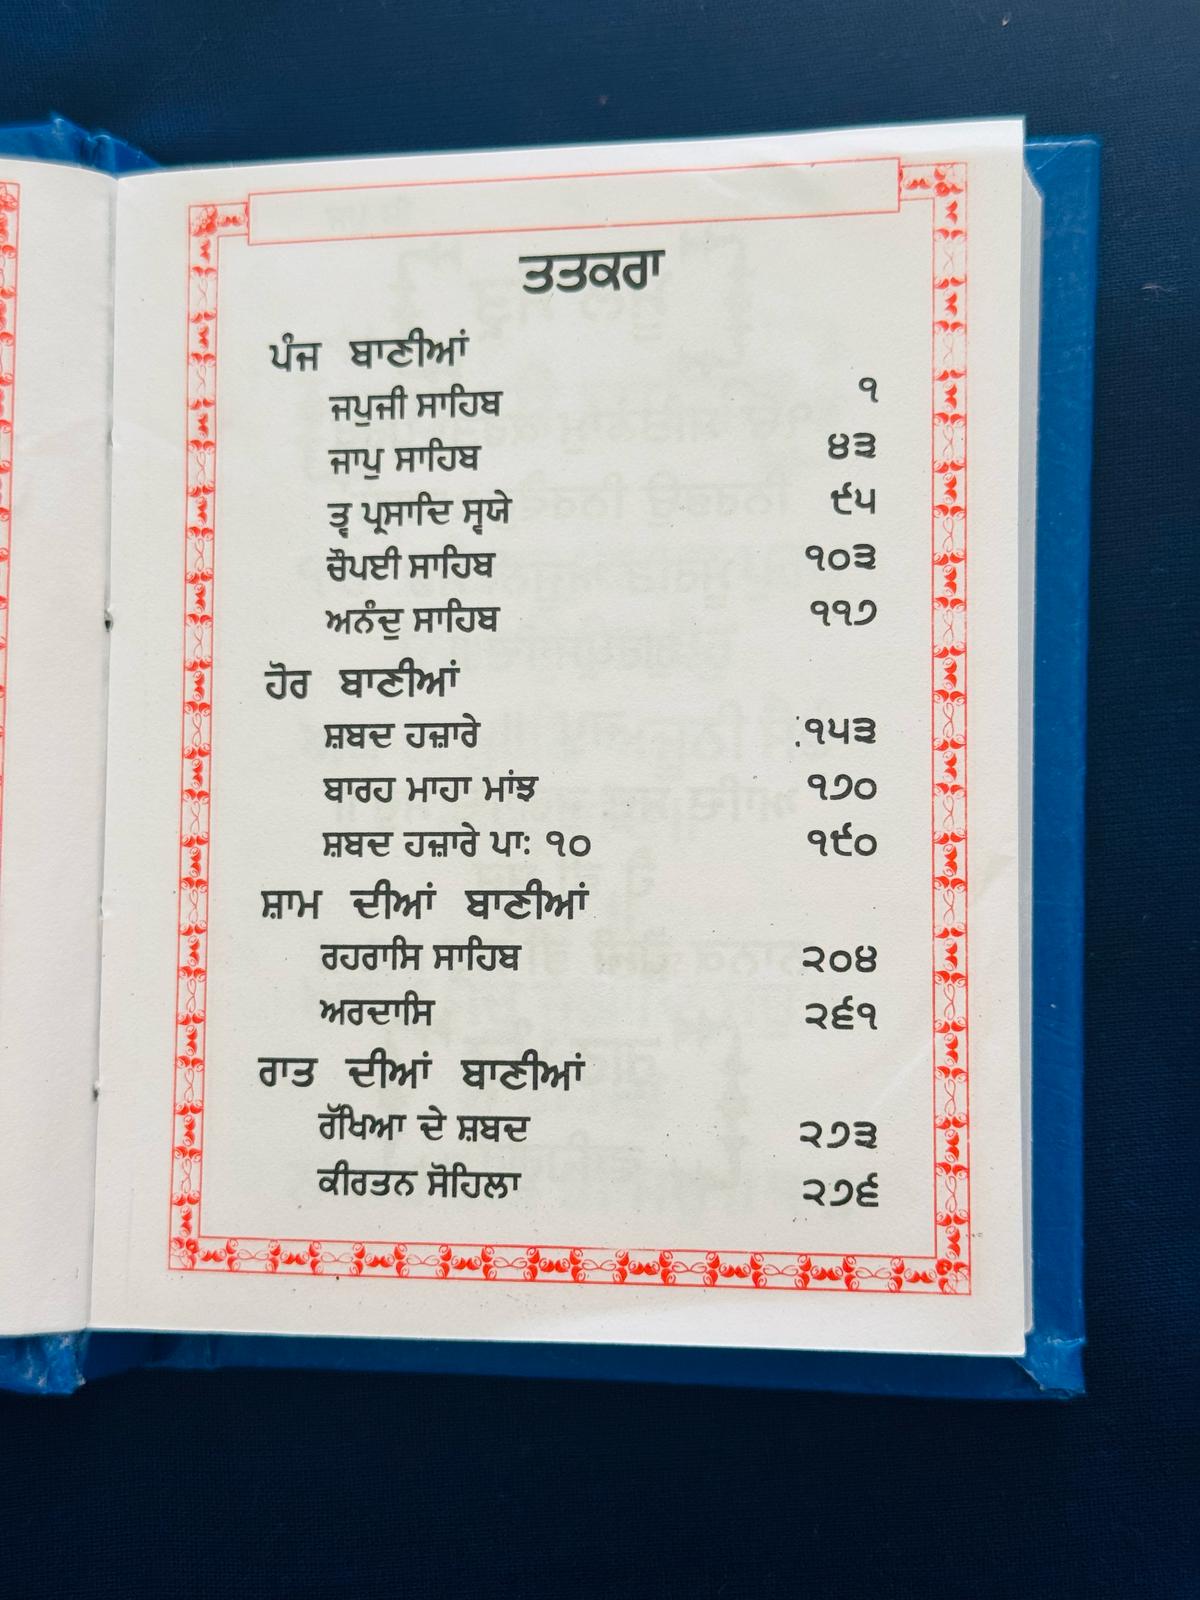 ਤਤਕਰਾ
ਪੰਜ ਬਾਣੀਆਂ
ਜਪੁਜੀ ਸਾਹਿਬ ੧
ਜਾਪੁ ਸਾਹਿਬ ੪੩
ਤ੍ਵ ਪ੍ਰਸਾਦਿ ਸ੍ਵਯੇ ੯੫
ਚੌਪਈ ਸਾਹਿਬ ੧੦੩
ਅਨੰਦੁ ਸਾਹਿਬ ੧੧੭
ਹੋਰ ਬਾਣੀਆਂ
ਸ਼ਬਦ ਹਜ਼ਾਰੇ ੧੫੩
ਬਾਰਹ ਮਾਹਾ ਮਾਂਝ ੧੭੦
ਸ਼ਬਦ ਹਜ਼ਾਰੇ ਪਾ: ੧੦ ੧੯੦
ਸ਼ਾਮ ਦੀਆਂ ਬਾਣੀਆਂ
ਰਹਰਾਸਿ ਸਾਹਿਬ ੨੦੪
ਅਰਦਾਸਿ ੨੬੧
ਰਾਤ ਦੀਆਂ ਬਾਣੀਆਂ
ਰੱਖਿਆ ਦੇ ਸ਼ਬਦ ੨੭੩
ਕੀਰਤਨ ਸੋਹਿਲਾ ੨੭੬